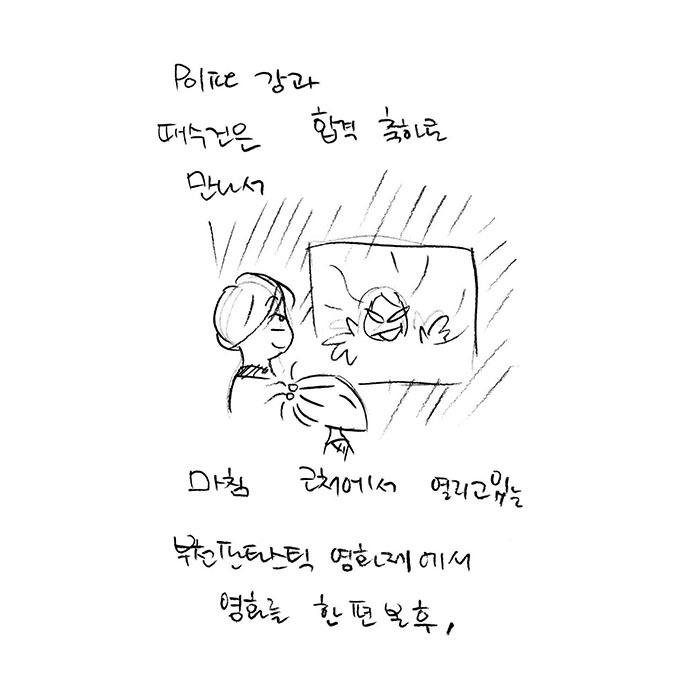 강과
때수건은 합격 축하로
만나서
마침 근처에서 열리고있는
부천판타스틱 영화제에서
영화를 한 편 본 후,